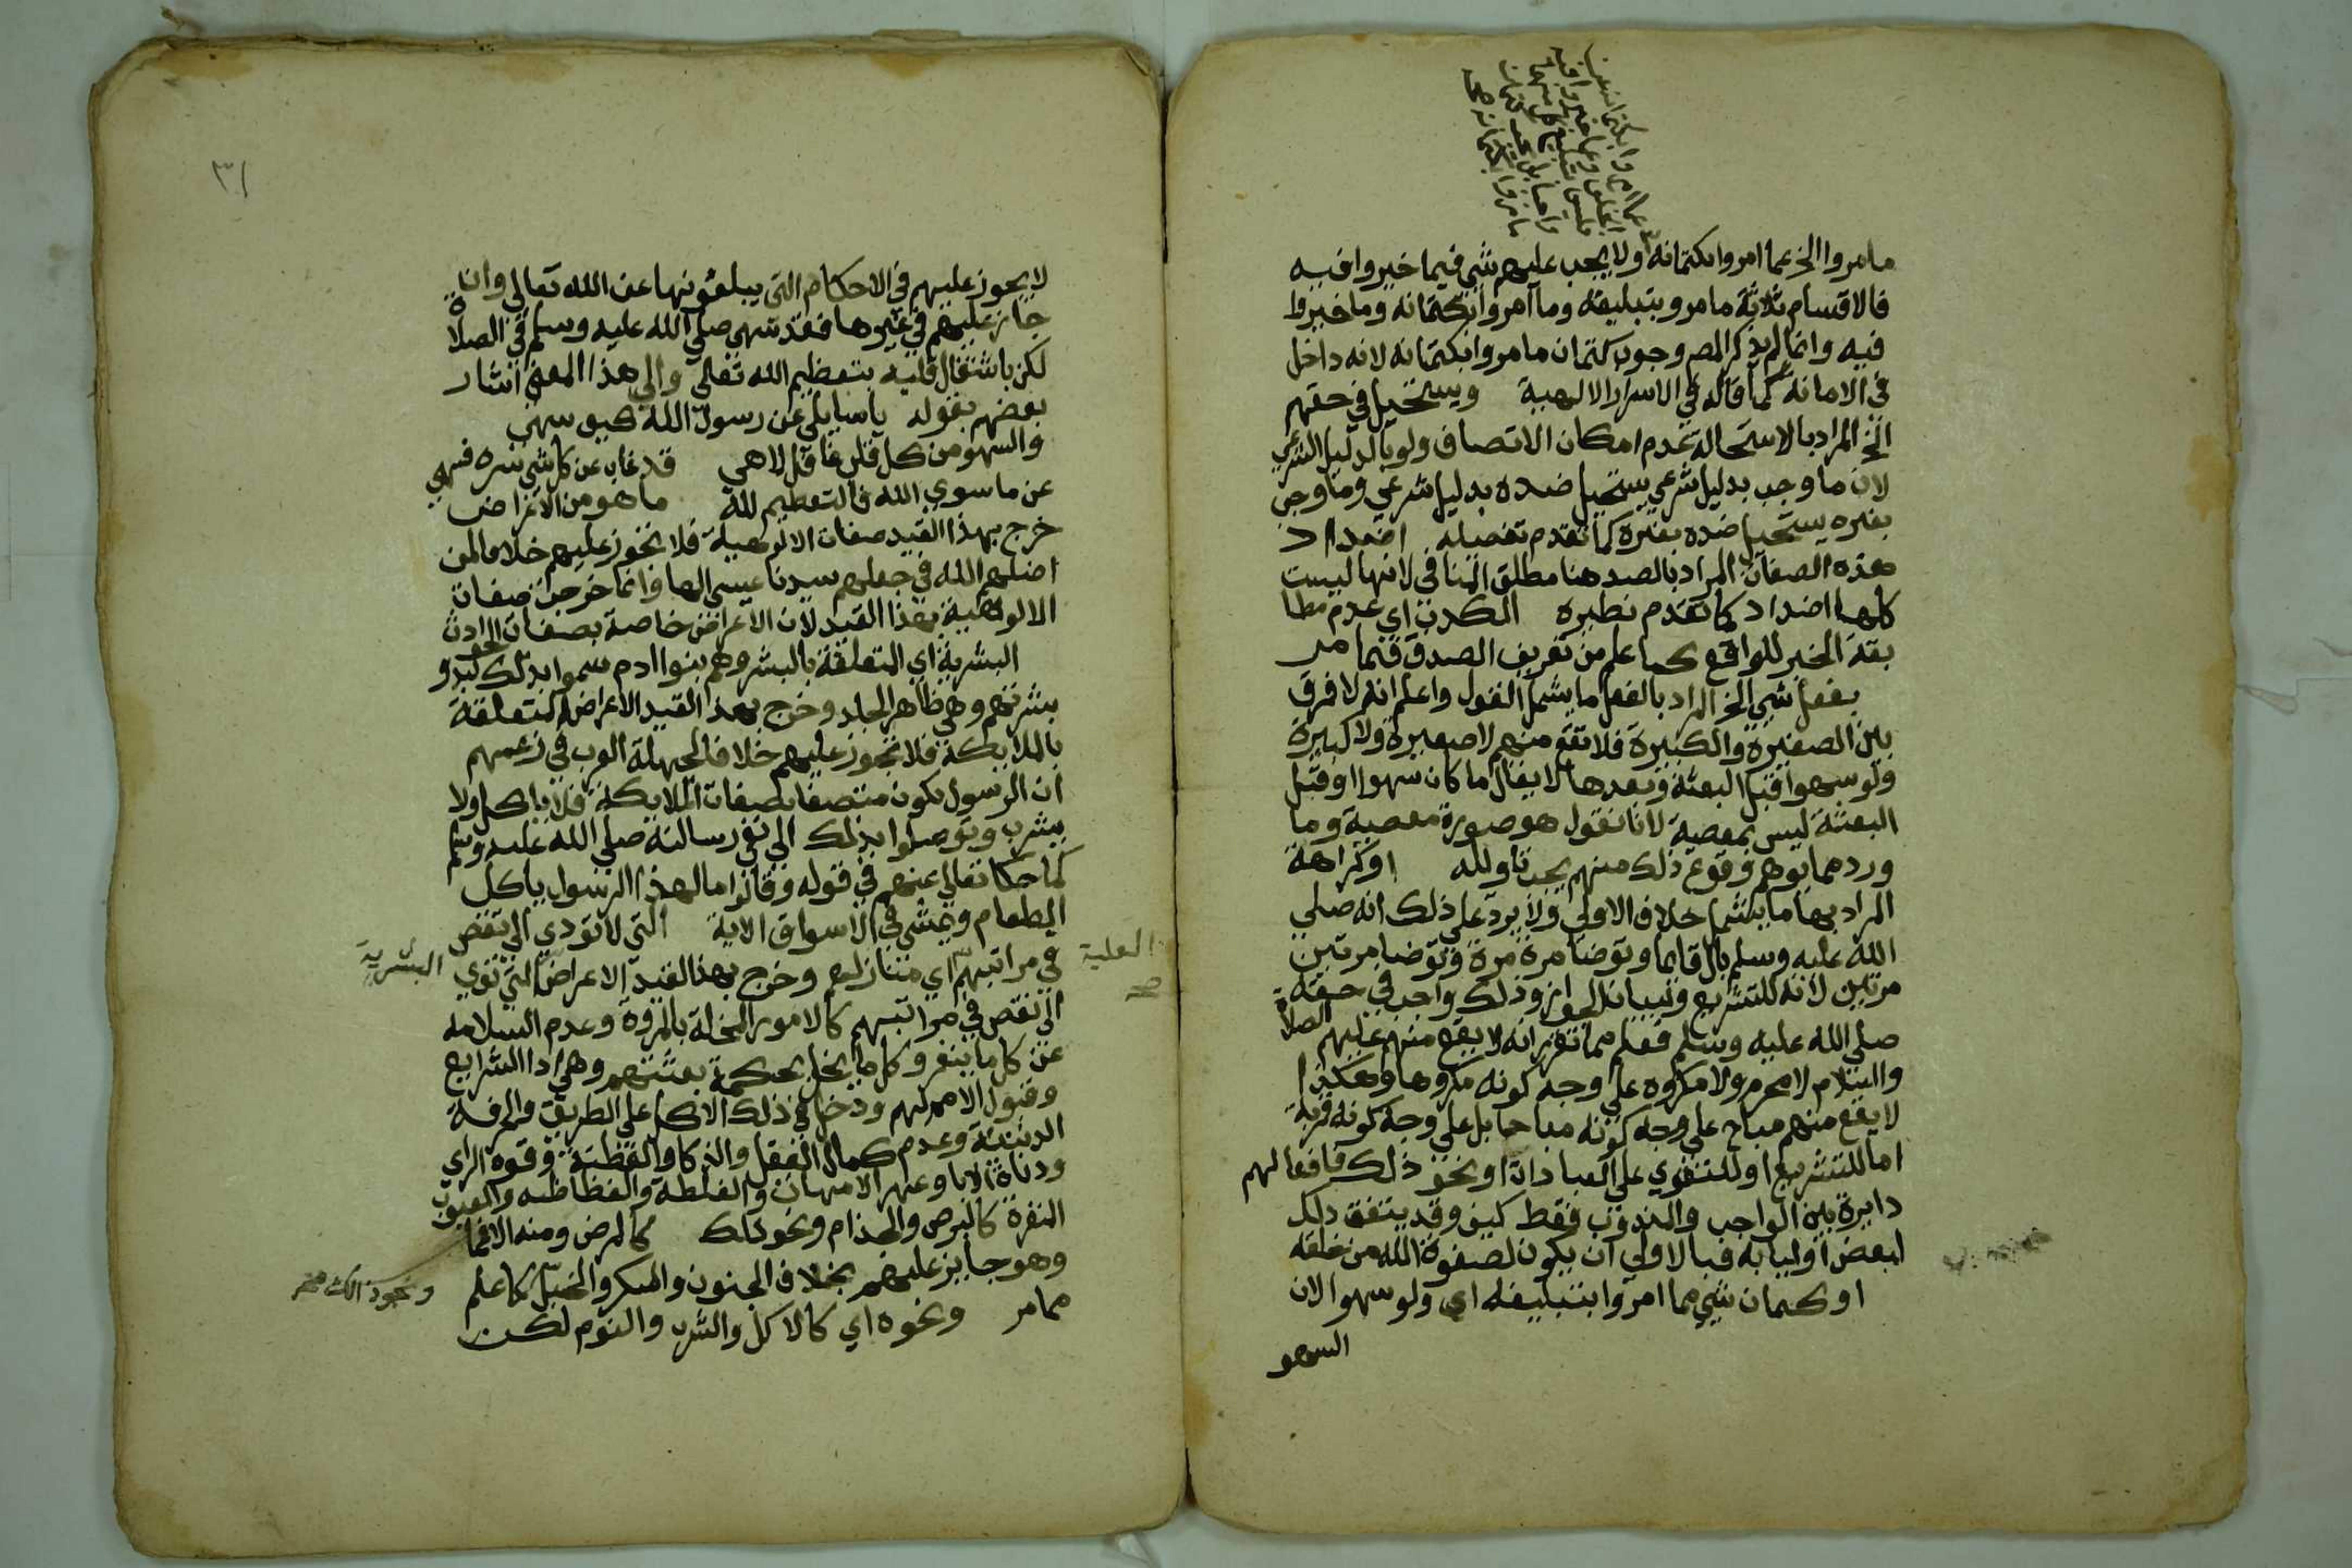 مامروا الخ عما امروا بكتمانه ولا يجب عليهم شي فيما خيروا فيه
فالاقسام ثلاثة مامروبتبليغه وما آمروا بكتمانه وماخيروا
فيه وانما لم يذكر المص وجوب كتمان مامروا بكتمانه لانه داخل
في الامانة كما قاله في الاسرار الالهية ويستحيل في حقهم
الخ المراد بالاستحالة عدم امكان الاتصاف ولو بالدليل الشرعي
لان ما وجب بدليل شرعي يستحيل ضده بدليل شرعي وما وجب
بغيره يستحيل ضده بغيره كما تقدم تفصيله اضداد
هذه الصفات المراد بالضد هنا مطلق المنافي لانها ليست
كلها اضداد كما تقدم نظيره الكذب اي عدم مطا
بقة الخبر للواقع كما علم من تعريف الصدق فيما مر
بفعل شي الخ المراد بالفعل ما يشمل القول واعلم انه لا فرق
بين الصغيرة والكبيرة فلا تقع منهم لا صغيرة ولا كبيرة
ولو سهوا قبل البعثة وبعدها لا يقال ما كان سهوا او قبل
البعثة ليس بمعصية لانا نقول هو صورة معصية وما
ورد مما يوهم وقوع ذلك منهم يجب تاويله او كراهة
المراد بها ما يشمل خلاف الاولي ولا يرد علي ذلك انه صلي
الله عليه وسلم بال قايما وتوضا مرة مرة وتوضا مرتين
مرتين لانه للتشريع وبيان الجواز وذلك واجب في حقه
صلي الله عليه وسلم فعلم مما تقرر انه لا يقع منهم عليهم الصلاة
والسلام لا محرم ولا مكروه علي وجه كونه مكروها وهكذا
لا يقع منهم مباح علي وجه كونه مباحا بل علي وجه كونه قربة
اما للتشريع او للتقوي علي العبادة او نحو ذلك فافعالهم
دايرة بين الواجب والمندوب فقط كيف وقد يتفق ذلك
لبعض اوليايه فبالاولي ان يكون لصفوة الله من خلقه
او كتمان شي مما امروا بتبليغه اي ولو سهوا لان
السهو
٣١
لا يجوز عليهم في الاحكام التي يبلغونها عن الله تعالي وان
جاز عليهم في غيرها فقد سهي صلي الله عليه وسلم في الصلاة
لكن باشتغال قلبه بتعظيم الله تعالي والي هذا المعني اشار
بعضهم بقوله ياسايلي عن رسول الله كيف سهي
والسهو من كل قلب غافل لاهي قد غاب عن كل شي سره فسهي
عن ما سوي الله فالتعظيم لله ما هو من الاعراض
خرج بهذا القيد صفات الالوهية فلا تجوز عليهم خلافا لمن
اضلهم الله في جعلهم سيدنا عيسي الها وانما خرجت صفات
الالوهية بهذا القيد لان الاعراض خاصة بصفات الحوادث
البشرية اي المتعلقة بالبشر وهم بنوا ادم سموا بذلك لبدو
بشرتهم وهي ظاهر الجلد وخرج بهذا القيد الاعراض المتعلقة
بالملايكة فلا تجوز عليهم خلافا لجهلة العرب في زعمهم
ان الرسول يكون متصفا بصفات الملايكة فلا ياكل ولا
يشرب وتوصلوا بذلك الي نفي رسالته صلي الله عليه وسلم
كما حكا تعالي عنهم في قوله وقالوا مالهذا الرسول ياكل
الطعام ويمشي في الاسواق الاية التي لا تودي الي نقص
في مراتبهم اي منازلهم وخرج بهذا القيد الاعراض التي تودي
العلية صح
البشرية
الي نقص في مراتبهم كالامور المخلة بالمروة وعدم السلامة
عن كل ما ينفر وكل ما يخل بحكمة بعثتهم وهي ادا الشرايع
وقبول الامم لهم ودخل في ذلك الاكل علي الطريق والحرفة
الدنيئة وعدم كمال العقل والذكا والفطنة وقوة الراي
ودناة الابا وعهر الامهات والغلظة والفظاظة والعيوب
المنفرة كالبرص والجذام ونحو ذلك كالمرض ومنه الاغما
وهو جايز عليهم بخلاف الجنون والسكر والخبل كما علم
ممامر ونحوه اي كالاكل والشرب والنوم لكن